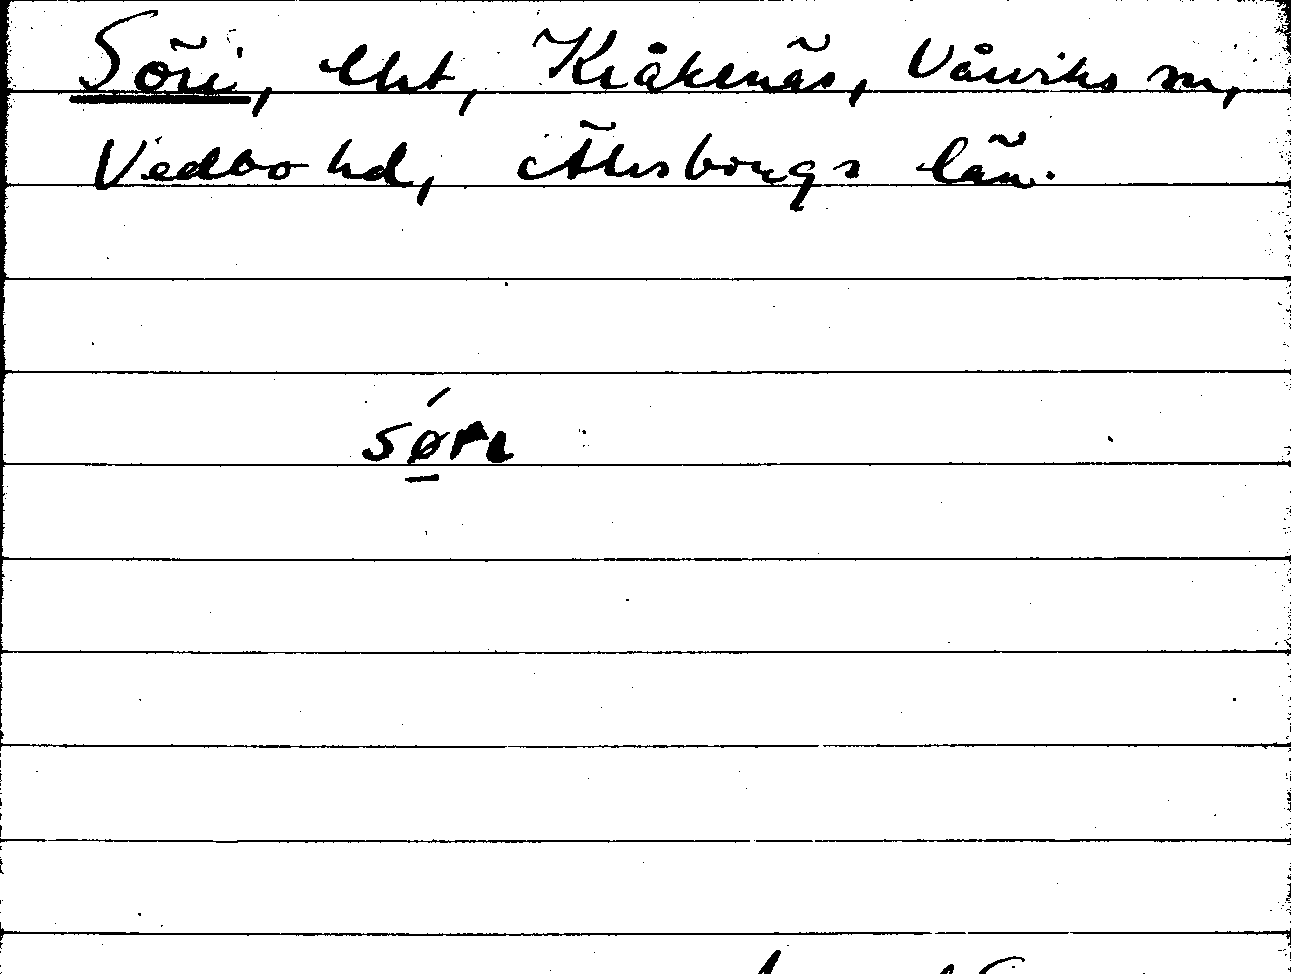 Söri, lht, Kråkenäs, Vårviks sn,
Vedbo hd, Älvsborgs län.
sǿ̱rɩ